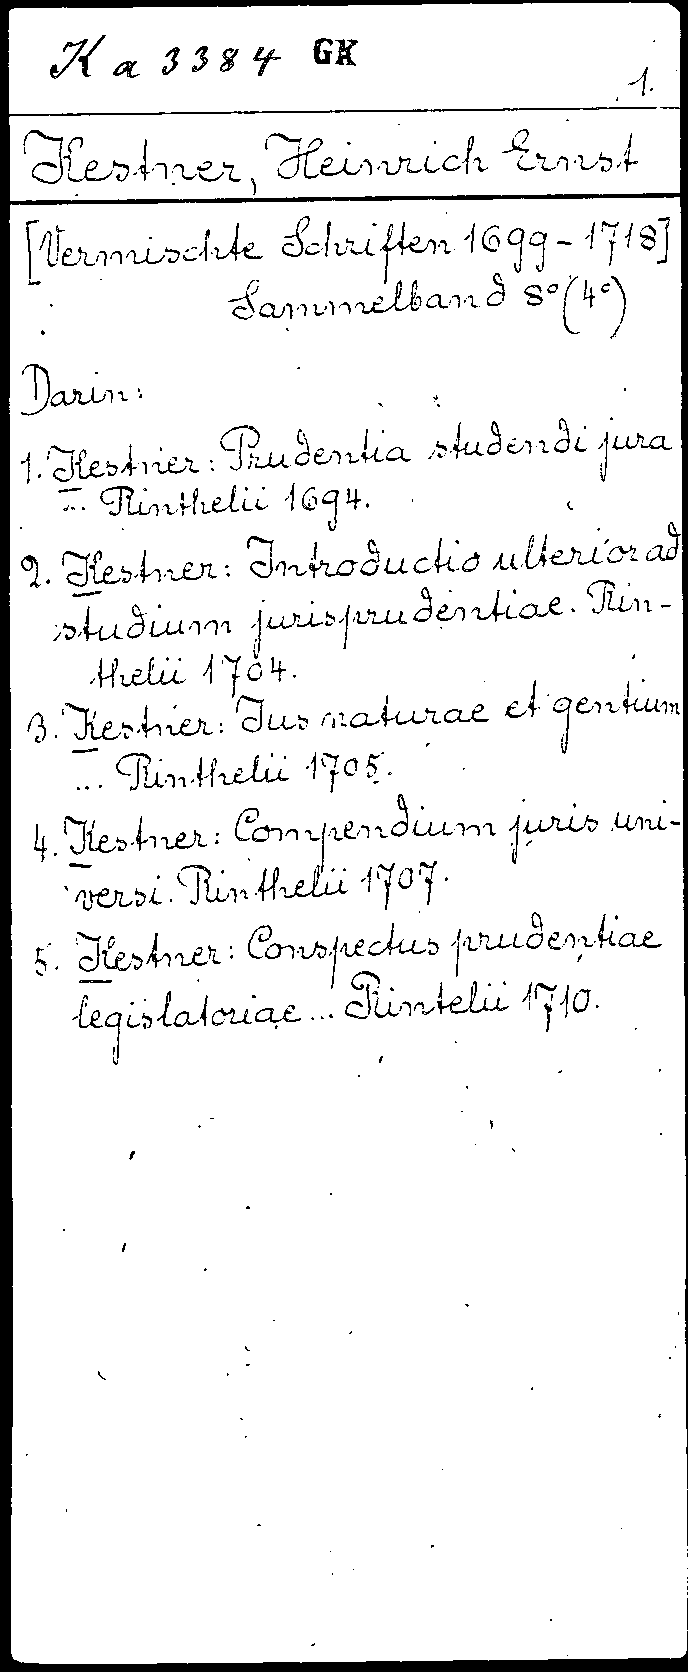 Ka 3384 GK
1.
Kestner, Heinrich Ernst
[Vermischte Schriften 1699-1718]
Sammelband 8°(4°)
Darin:
1. Kestner: Prudentia studendi jura
... Rinthelii 1694.
2. Kestner: Introductio ulterior ad
studium jurisprudentiae. Rin-
thelii 1704.
3. Kestner: Jus naturae et gentium
... Rinthelii 1705.
4. Kestner: Compendium juris uni-
versi. Rinthelii 1707.
5. Kestner: Conspectus prudentiae
legislatoriae... Rintelii 1710.